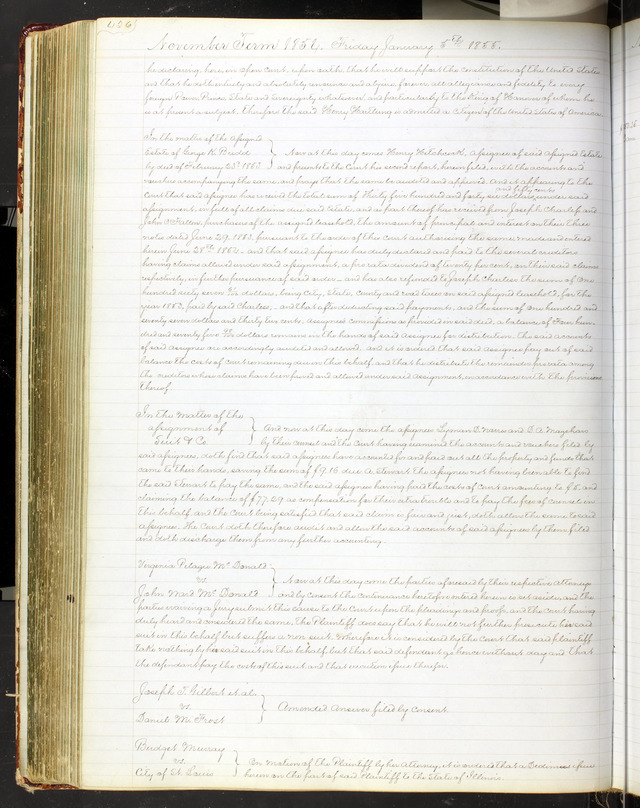 426
November Term 1854. Friday January 5th 1855.
he declaring here in open Court, upon oath, that he will support the Constitution of the United States
and that he doth entirely and absolutely renounce and abjure forever all allegiance and fidelity to every
foreign Power, Prince State and Sovereignty whatsoever and particularly to the King of Hanover of whom he
is at present a subject. Therefore the said Henry is admitted a Citizen of the United States of America.
In the matter of the Assigned
Estate of George K. Budd
by deed of February 23d 1853
Now at this day comes Henry Hitchcock, Assignee of said Assigned Estate
and presents to the Court his second report, herein filed, with the accounts and
vouchers accompanying the same and prays that the same be audited and approved. And it appearing to the
and fifty cents
Court that said assignee has received the total sum of Thirty five hundred and forty six dollars, under said
assignment in full of all claims due said Estate, and as part thereof has received from Joseph Charless and
John McAllister, purchasers of the assigned leasehold, the amount of principal and interest on their three
notes dated June 29, 1853, pursuant to the order of this Court authorizing the same, made and entered
herein June 28th 1854, and that said assignee has duly declared and paid to the several creditors
having claims allowed under said assignment, a pro rata dividend of twenty per cent, on their said claims
respectively in further pursuance of said order, and has also refunded to Joseph Charless the sum of One
hundred sixty seven dollars, being City, State, County and road taxes on said assigned leasehold, for the
year 1853, paid by said Charless, and that after deducting said payments, and the sum of One hundred and
seventy seven dollars and thirty two cents, assignees commission as provided in said deed, a balance of Four hun-
dred and seventy five dollars remains in the hands of said assignee for distribution. The said accounts
of said assignee are accordingly audited and allowed, and it is ordered that said assignee pay out of said
balance the costs of Court remaining due in this behalf, and that he distribute the remainder pro rata among
the creditors whose claims have been proved and allowed under said Assignment, in accordance with the provisions
thereof.
In the Matter of the
Assignment of
& Co
And now at this day come the assignees Lyman D. and
by their counsel and the Court having examined the accounts and vouchers filed by
said assignees, doth find that said assignees have accounted for and paid out all the property and funds that
came to their hands, saving the sum of $9.16 due A. Stewart the assignee not having been able to find
the said Stewart to pay the same, and the said assignees having paid the costs of Court amounting to and
claiming the balance of $77.29 as compensation for their extra trouble and to pay the fees of counsel in
this behalf, and the Court being satisfied that said claim is fair and just, doth allow the same to said
assignees. The Court doth therefore audit and allow the said accounts of said assignees by them filed
and doth discharge them from any further accounting.
Virginia Pelagie McDonald
vs.
John Ward McDonald
Now at this day come the parties aforesaid by their respective Attorneys
and by consent the continuance heretofore entered herein is set aside, and the
parties waiving a jury submit this cause to the Court upon the pleadings and proofs, and the Court having
duly heard and considered the same, the Plaintiff does say that she will not further prosecute her said
suit in this behalf but suffers a non suit. Wherefore it is considered by the Court that said plaintiff
take nothing by her said suit in this behalf, but that said defendant go hence without day and that
the defendant pay the costs of this suit and that execution issue therefor.
Joseph T. Gilbert et al.
vs.
Daniel M. Frost
Amended Answer filed by Consent.
Bridget Murray
vs.
City of St. Louis
On Motion of the Plaintiff by her Attorney, it is ordered that a Dedimus issue
herein on the part of said Plaintiff to the State of Illinois.